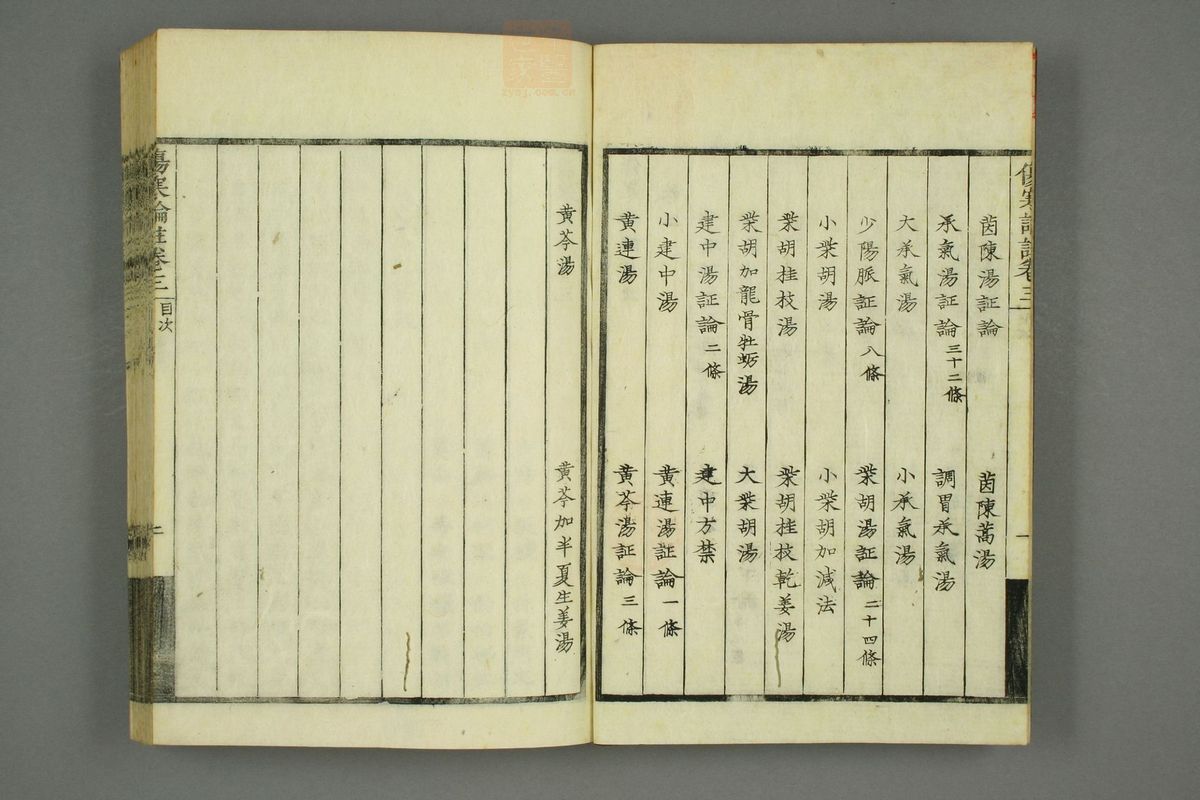 傷寒論註卷三
茵陳湯証論
茵陳蒿湯
承氣湯証論 三十二條
調胃承氣湯
大承氣湯
小承氣湯
少陽脈証論 八條
柴胡湯証論 二十四條
小柴胡湯
小柴胡加減法
柴胡桂枝湯
柴胡桂枝乾姜湯
柴胡加龍骨牡蛎湯
大柴胡湯
建中湯証論 二條
建中方禁
小建中湯
黄連湯証論 一條
黄連湯
黄芩湯証論 三條
黄芩湯
黄芩加半夏生姜湯
傷寒論註卷三 目次
二
zyyj.ooo.cn